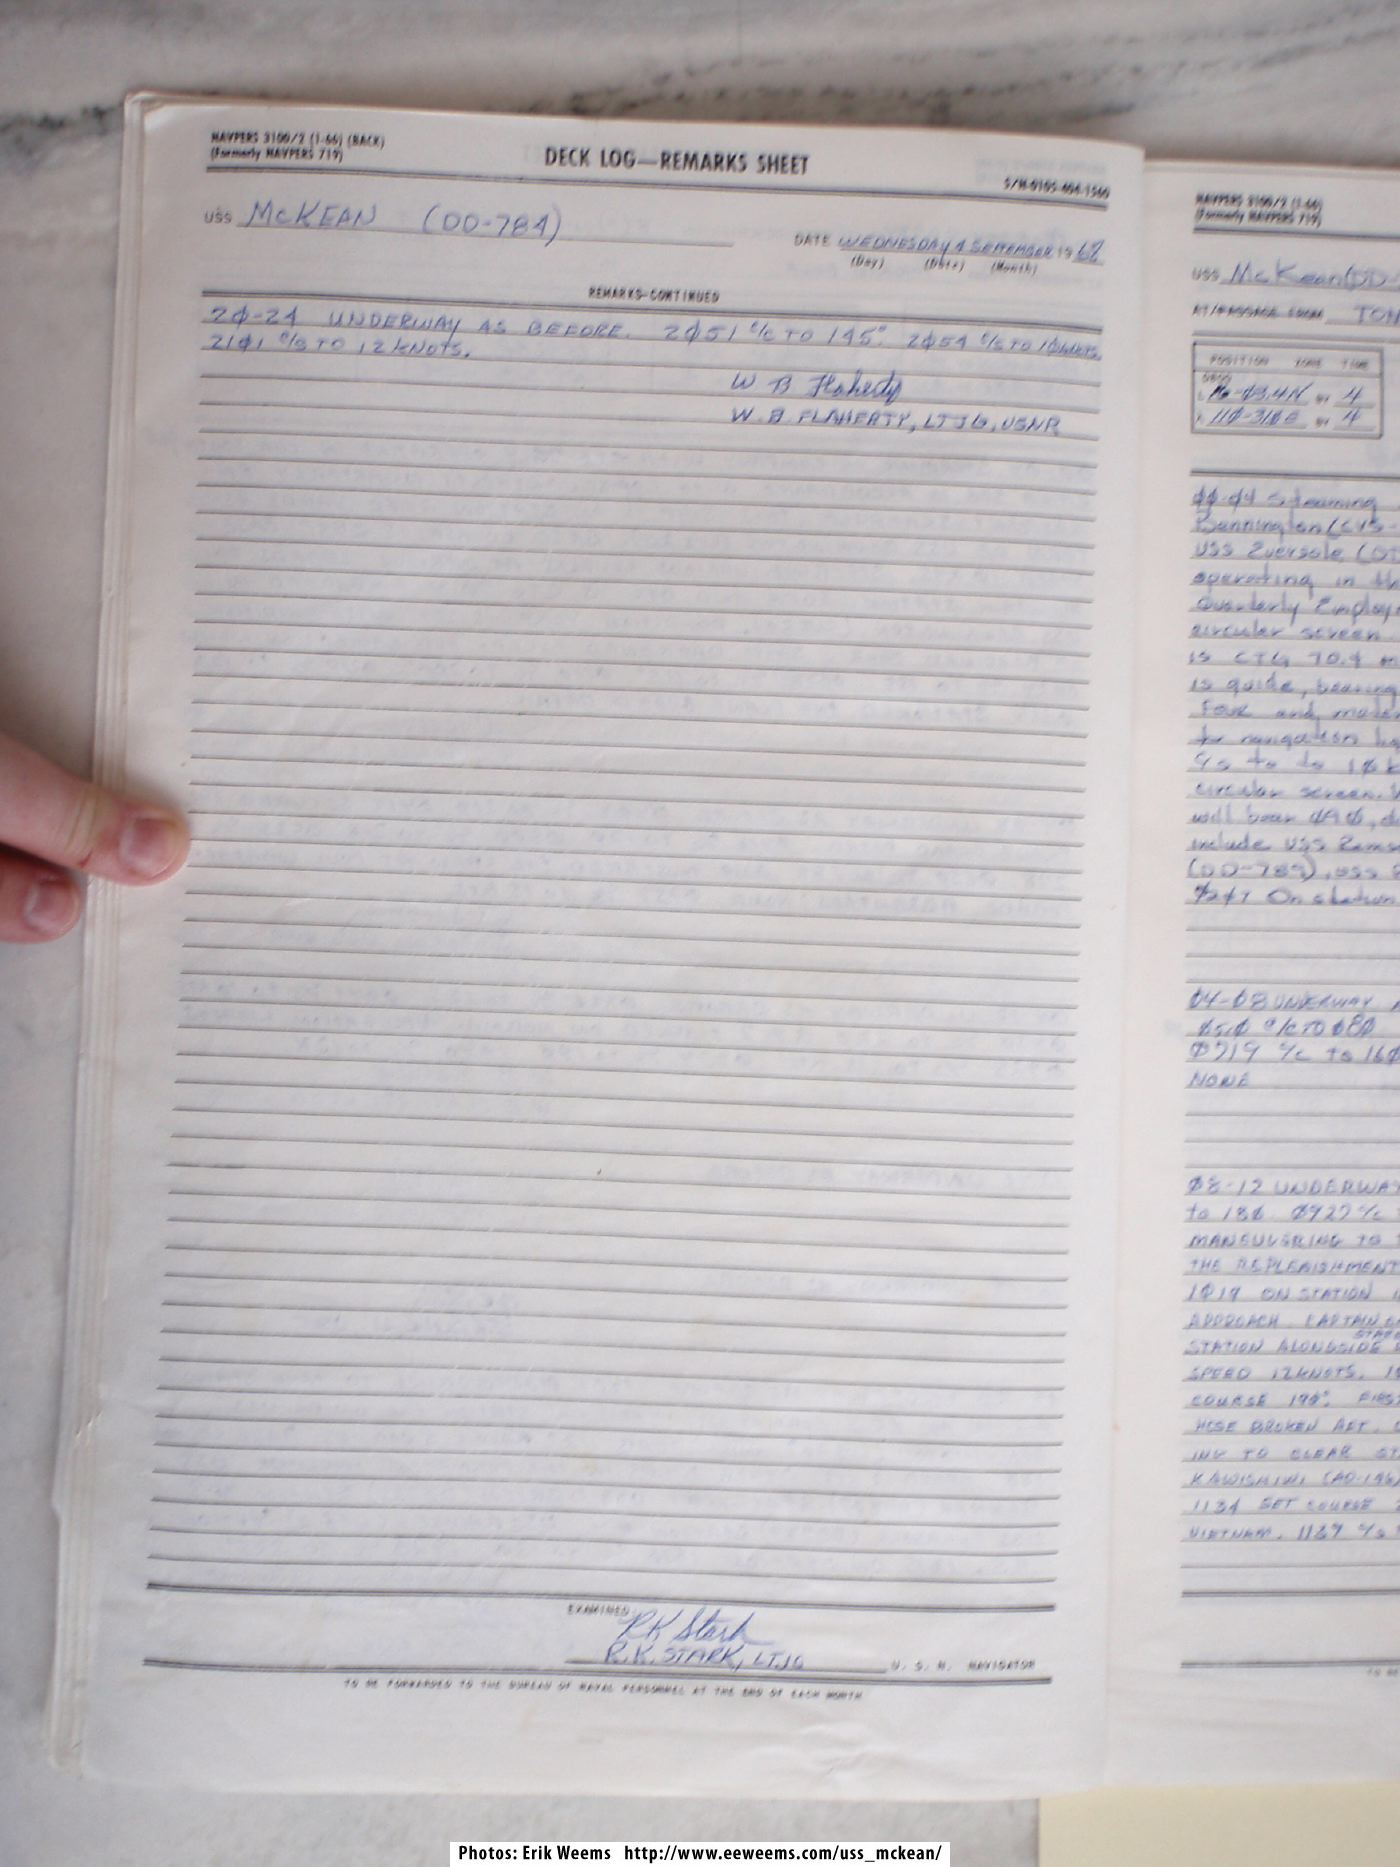 NAVPERS 3100/2 (1-66) (BACK)
(Formerly NAVPERS 719)
DECK LOG—REMARKS SHEET
S/N-0105-404-1560
USS McKEAN (DD-784)
DATE WEDNESDAY 4 SEPTEMBER 1968
(Day) (Date) (Month)
REMARKS-CONTINUED
2Ø-24 UNDERWAY AS BEFORE. 2Ø51 c/c TO 145°. 2Ø54 c/s TO 1Ø KNOTS.
21Ø1 c/s TO 12 KNOTS.
W B Flaherty
W. B. FLAHERTY, LTJG, USNR
EXAMINED
RK Stark
R.K. STARK, LTJG
U. S. N. NAVIGATOR
TO BE FORWARDED TO THE BUREAU OF NAVAL PERSONNEL AT THE END OF EACH MONTH
NAVPERS 3100/2 (1-66)
(Formerly NAVPERS 719)
USS McKean (DD-
AT/PASSAGE FROM TON
POSITION ZONE TIME
0800
L 16-Ø3.4N BY 4
λ 11Ø-31Ø E BY 4
ØØ-Ø4 Steaming
Bennington (CVS
USS Eversole (DD
operating in the
Quarterly Employ
circular screen
is CTG 70.4
is guide, bearing
Four and
for navigation
c/s to 1Ø K
circular screen.
will bear Ø9Ø,
include USS
(DD-789), USS
Ø2Ø7 On station
Ø4-Ø8 UNDERWAY
c/c TO Ø8Ø
Ø719 c/c to 16Ø
NONE
Ø8-12 UNDERWAY
to 18Ø. Ø927 c/c
MANEUVERING TO
THE REPLENISHMENT
1Ø19 ON STATION
APPROACH. CAPTAIN
STATION ALONGSIDE
SPEED 12 KNOTS.
COURSE 19Ø°. FIRST
HOSE BROKEN AFT.
ING TO CLEAR
KAWISHIWI (AO-146)
1134 SET COURSE
VIETNAM. 1137 c/s
TO BE
Photos: Erik Weems http://www.eeweems.com/uss_mckean/